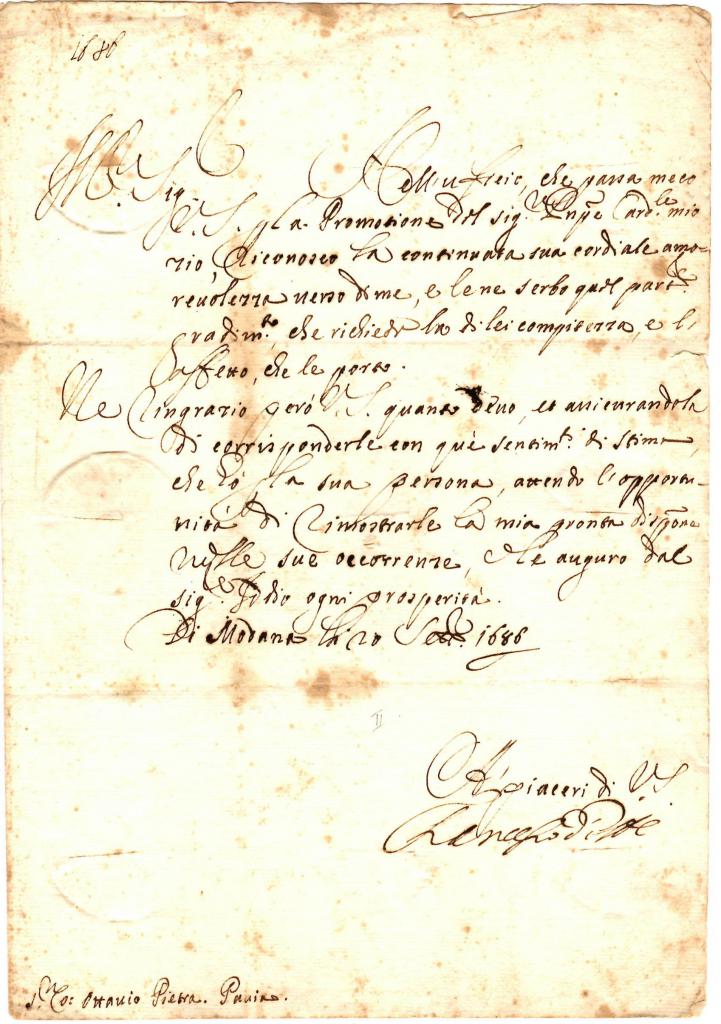 1686
Ill.re Sig.r Nell'ufficio, che passa meco
V. S. p la Promotione del sig.r Prnpe Card.le mio
zio, Riconosco la continuata sua cordiale amo-
revolezza verso di me, e le ne serbo quel part.
gradim.to, che richiede la di lei compitezza, e l'
affetto, che le porto.
Ne Ringrazio però V. S. quanto devo, et assicurandola
di corrisponderle con què sentim.ti di stima,
che hò p la sua persona, attendo l'opportu-
nità di Rimostrarle la mia pronta dispone
nelle sue occorrenze, e le auguro dal
sig.re Iddio ogni prosperità.
Di Modana li 20 Sett.e 1686
II
A' piaceri di V S
Francesco d'Este
S. Co: Ottavio Pietra. Pavia.